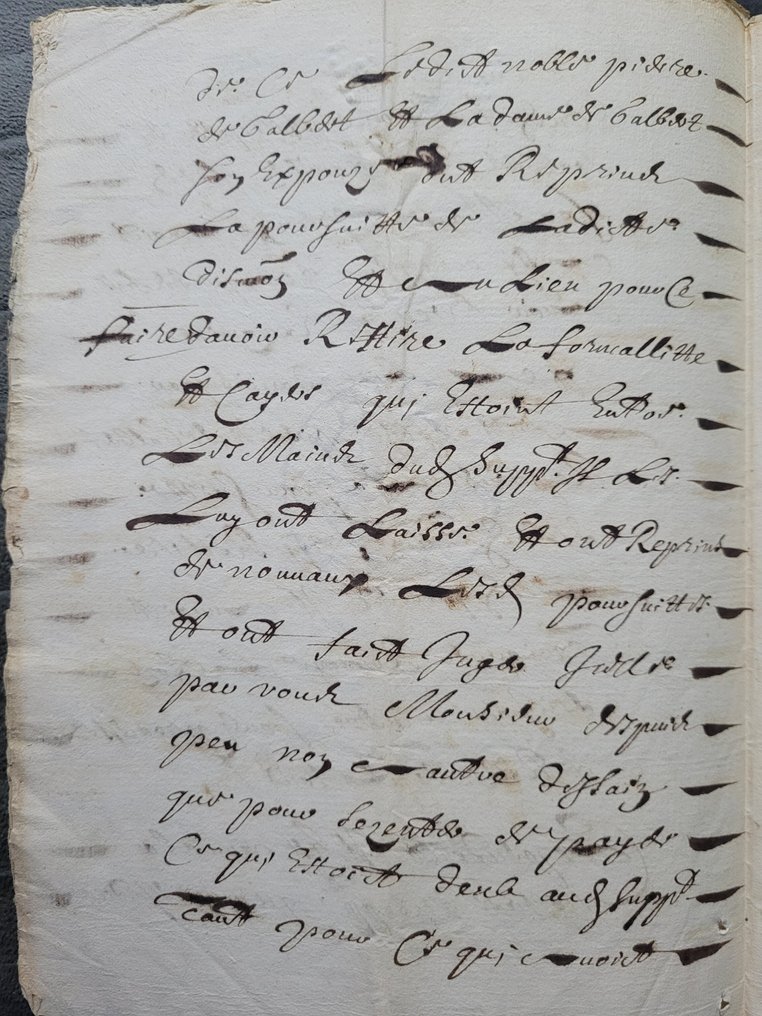 de Ce Ledit noble pierre
de Calbet Et La dame de Calbet
son Expouze ont Reprins
La poursuitte de Ladicte
Et au Lieu pour Ce
faire davoir Rettire La formallitte
Et Cayers qui Estoint Entre
Les Mains dud suppt Il Les
Luy ont Laisse Et ont Reprins
de nouvau Lesd poursuittes
Et ont faict Juger
par vous Monsieur despuis
peu non a autre dessain
que pour de payer
Ce qui Estoit deub aud suppt
tant pour Ce qui avoit